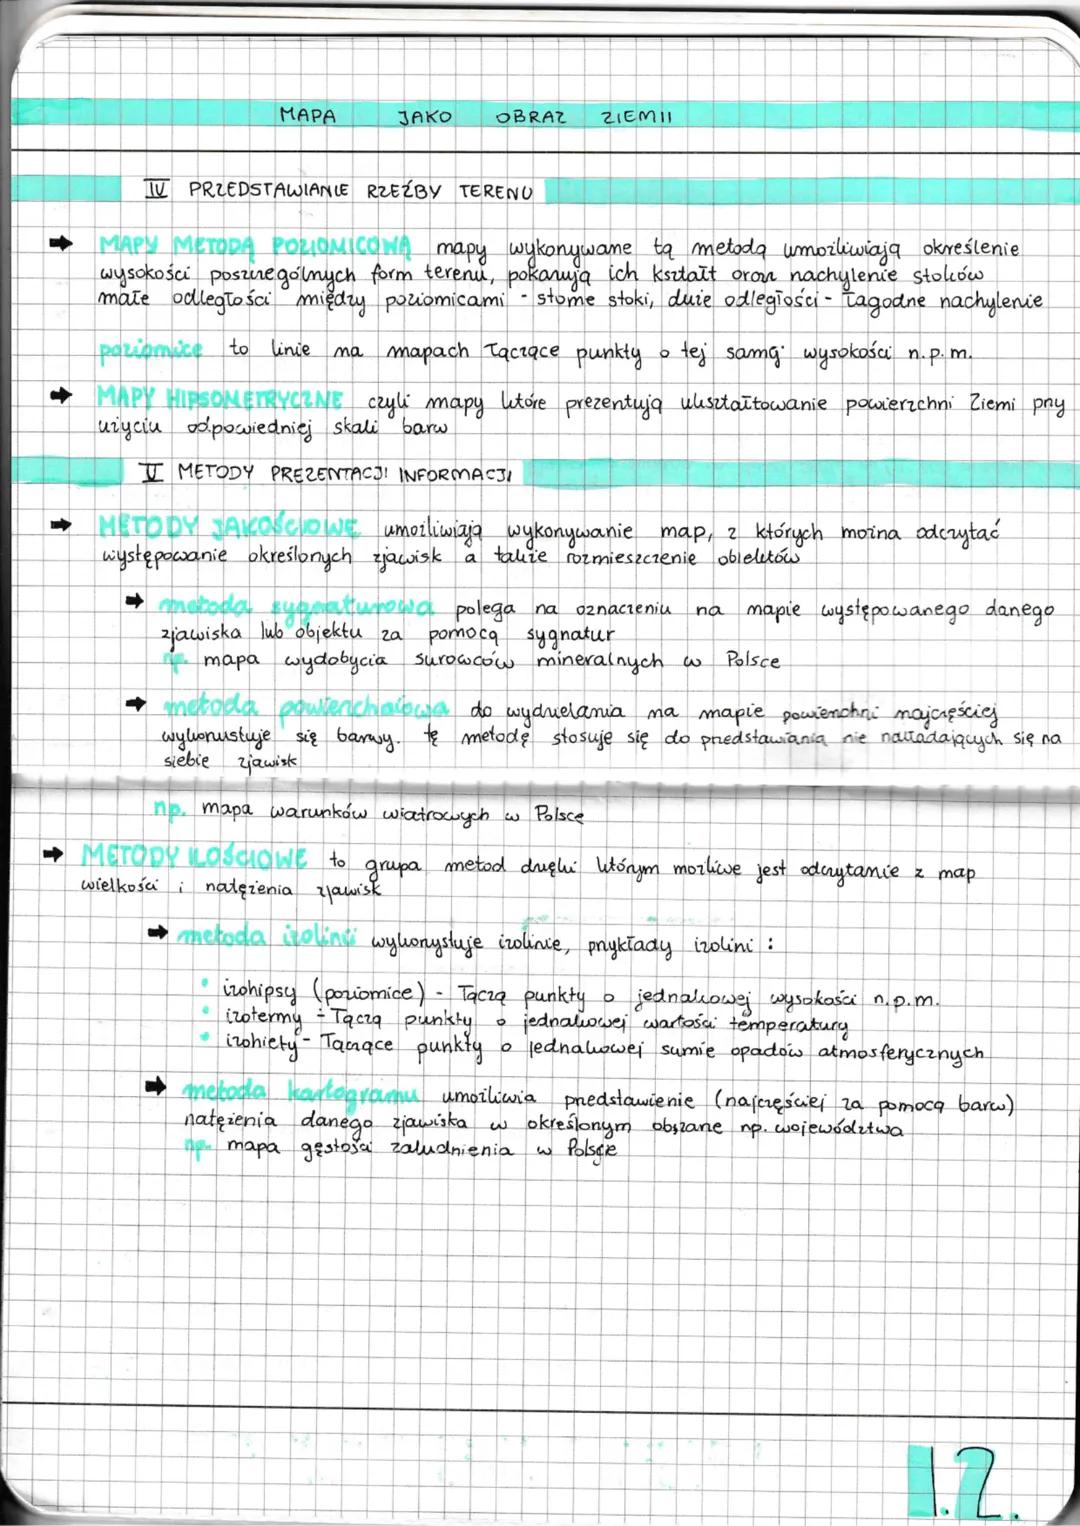 MAPA JAKO OBRAZ ZIEMII
IV PRZEDSTAWIANIE RZEŹBY TERENU
➡ MAPY METODĄ POZIOMICOWĄ mapy wykonywane tą metodą umożliwiają określenie
wysokości poszczególnych form terenu, pokazują ich kształt oraz nachylenie stoków
małe odległości między poziomicami - strome stoki, duże odległości - łagodne nachylenie
poziomice to linie na mapach łączące punkty o tej samej wysokości n.p.m.
➡ MAPY HIPSOMETRYCZNE czyli mapy które prezentują ukształtowanie powierzchni Ziemi przy
użyciu odpowiedniej skali barw
V METODY PREZENTACJI INFORMACJI
➡ METODY JAKOŚCIOWE umożliwiają wykonywanie map, z których można odczytać
występowanie określonych zjawisk a także rozmieszczenie obiektów
➡ metoda sygnaturowa polega na oznaczeniu na mapie występowanego danego
zjawiska lub objektu za pomocą sygnatur
np. mapa wydobycia surowców mineralnych w Polsce
➡ metoda powierzchniowa do wydzielania na mapie powierzchni najczęściej
wykorzystuje się barwy. tę metodę stosuje się do przedstawiania nie nakładających się na
siebie zjawisk
np. mapa warunków wiatrowych w Polsce
➡ METODY ILOŚCIOWE to grupa metod dzięki którym możliwe jest odczytanie z map
wielkości i natężenia zjawisk
➡ metoda izolinii wykorzystuje izolinie, przykłady izolini :
• izohipsy (poziomice) - łączą punkty o jednakowej wysokości n.p.m.
• izotermy - łączą punkty o jednakowej wartości temperatury
• izohiety - łączące punkty o jednakowej sumie opadów atmosferycznych
➡ metoda kartogramu umożliwia przedstawienie (najczęściej za pomocą barw)
natężenia danego zjawiska w określonym obszarze np. województwa
np. mapa gęstości zaludnienia w Polsce
1.2.